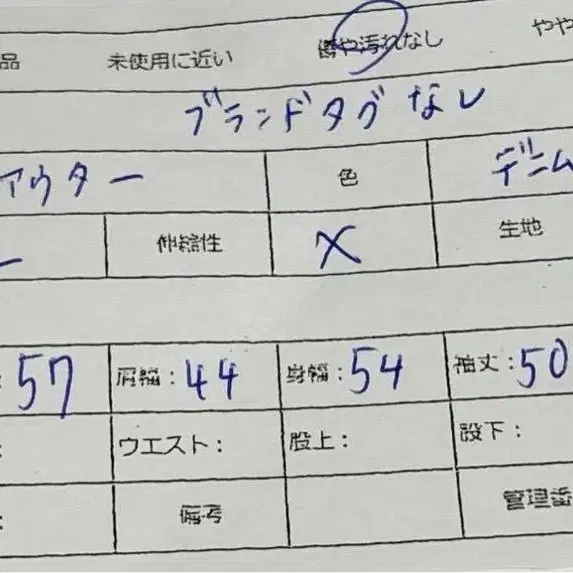 品 未使用に近い 傷や汚れなし やや
ブランドタグなし
アウター 色 デニム
伸縮性 × 生地
: 57 肩幅: 44 身幅: 54 袖丈: 50
: ウエスト: 股上: 股下:
: 備考 管理番